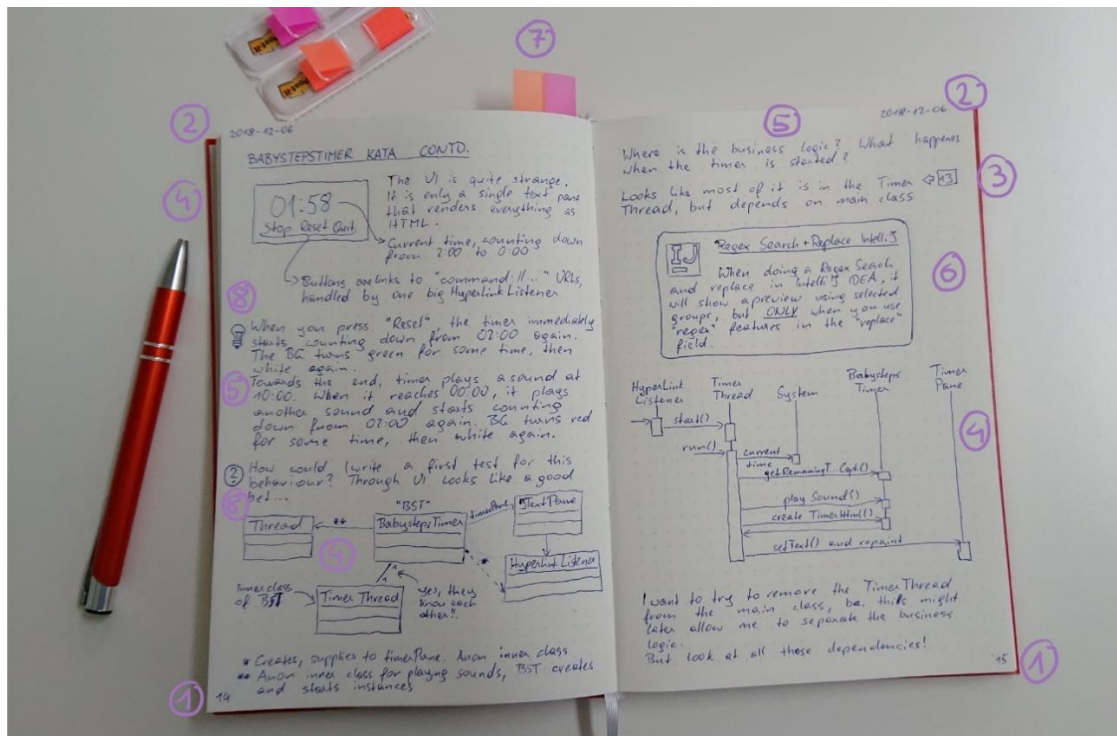 7
2
2018-12-06
BABYSTEPSTIMER KATA CONTD.
4
01:58
Stop Reset Quit
The UI is quite strange.
It is only a single text pane
that renders everything as
HTML.
Current time, counting down
from 2:00 to 0:00
Buttons are links to "command://..." URLs,
handled by one big Hyperlink Listener
8
When you press "Reset", the timer immediately
starts counting down from 02:00 again.
The BG turns green for some time, then
white again.
5
Towards the end, timer plays a sound at
10:00. When it reaches 00:00, it plays
another sound and starts counting
down from 02:00 again. BG turns red
for some time, then white again.
?
How could I write a first test for this
behaviour? Through UI looks like a good
bet...
"BST"
Thread
**
BabystepsTimer
timerPane
TextPane
4
*
Hyperlink Listener
1
1
inner class
of BST
Timer Thread
Yes, they
know each
other!
* Creates, supplies to timerPane. Anon inner class
** Anon inner class for playing sounds, BST creates
and starts instances
1
14
2
2018-12-06
5
Where is the business logic? What happens
when the timer is started?
Looks like most of it is in the Timer
Thread, but depends on main class
13
3
IJ
Regex Search + Replace IntelliJ
When doing a Regex Search
and replace in IntelliJ IDEA, it
will show a preview using selected
groups, but ONLY when you use
"regex" features in the "replace"
field.
6
Hyperlink
Listener
Timer
Thread
System
Babysteps
Timer
Timer
Pane
4
start()
run()
current
time
getRemainingT...Capt.()
play Sound()
create TimerHtml()
setText() and repaint
I want to try to remove the TimerThread
from the main class, bc. this might
later allow me to separate the business
logic.
But look at all those dependencies!
15
1